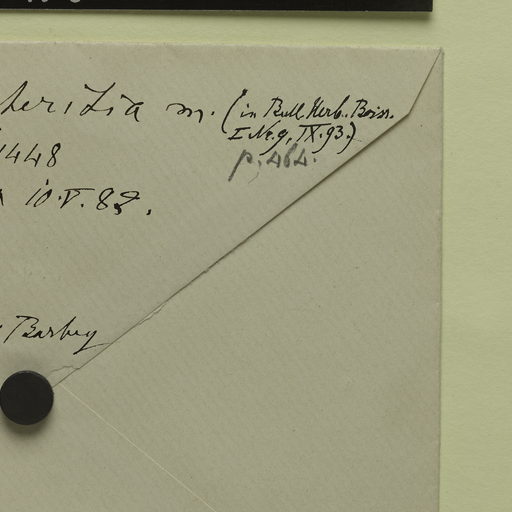 m. (in Bull. Herb. Boiss.
I. Nr. 9, IX. 93.)
p. 464.
1448
10. V. 82.
Barbey